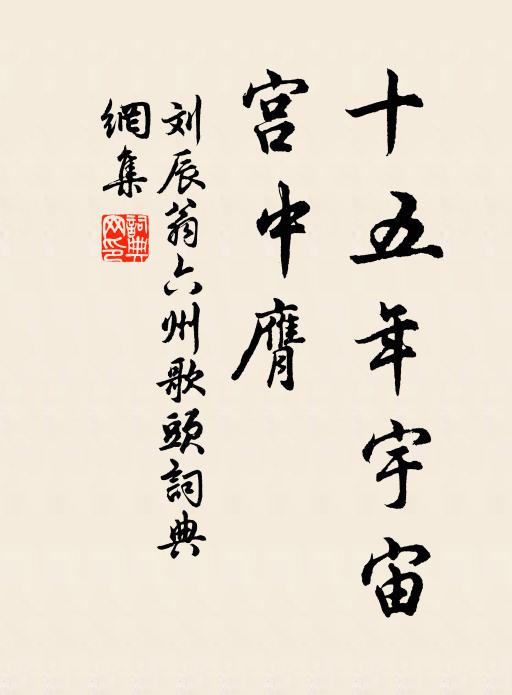 十五年宇宙
宫中膺
刘辰翁六州歌頭詞典
網集
詞典網印